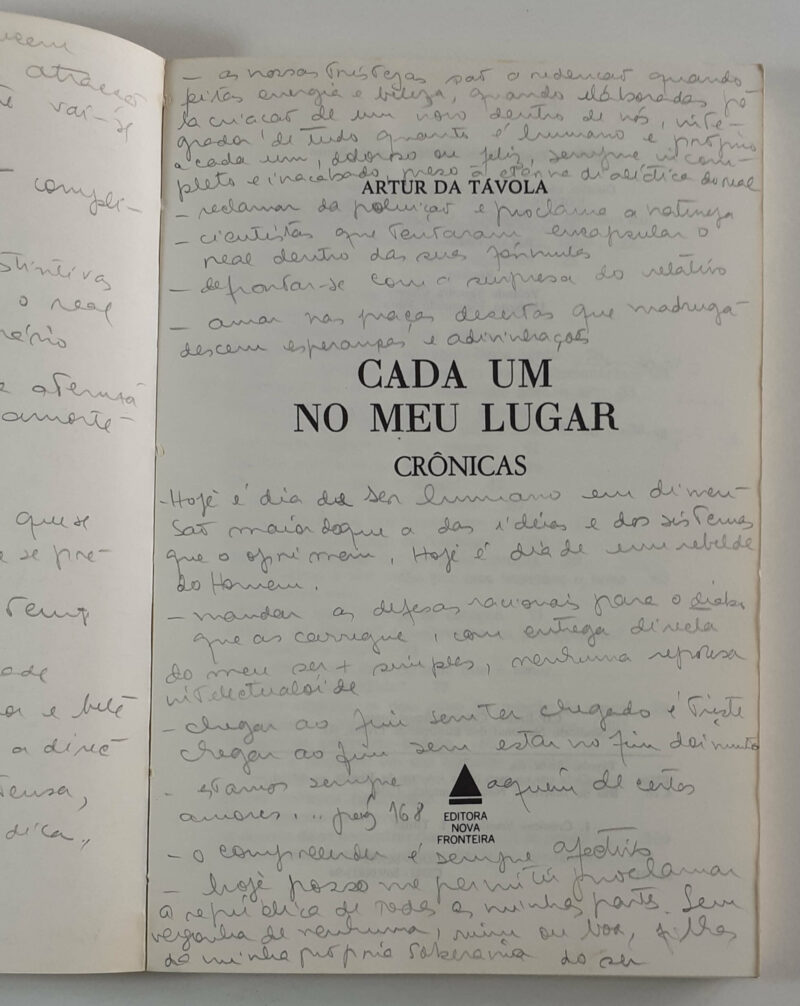 atracç
vai-se
compli-
stintivas
o real
nário
a ternurá
amorte-
que se
e se pre-
Temp
ade
e belé
a direc
tensa,
dica,
— as nossas tristezas sat o redencat quando
feitas energia e beleza, quando elaboradas pē
la criacat de um novo dentro de nós, inte-
grador de tudo quanto é humano e próprio
a cada um, doloroso ou feliz, sempre incom-
pleto e inacabado, preso à eterna dialéctica do real
ARTUR DA TÁVOLA
— reclamar da poluicat e proclama a natureza
— cientistas que tentaram encapsular o
real dentro das suas fórmulas
— defrontar-se com a surpresa do relativo
— amar nas praças desertas que madrugā
descem esperanças e adivinhações
CADA UM
NO MEU LUGAR
CRÔNICAS
- Hoje é dia do ser humano em dimen-
sat maior do que a das idéias e dos sistemas
que o oprimem. Hoje é dia de um rebelde
do Homem.
— mandar as defesas racionais para o diabo
que as carregue, com entrega directa
do meu ser + simples, nenhuma represa
intelectualóide
— chegar ao fim sem ter chegado é triste
chegar ao fim sem estar no fim doi muito
— estamos sempre aquém de certos
amores... pág 168
EDITORA
NOVA
FRONTEIRA
— o compreender é sempre afectivo
— hoje posso me permitir proclamar
a república de todas as minhas partes. Sem
vergonha de nenhuma, ruim ou boa, filhas
da minha própria soberania do ser